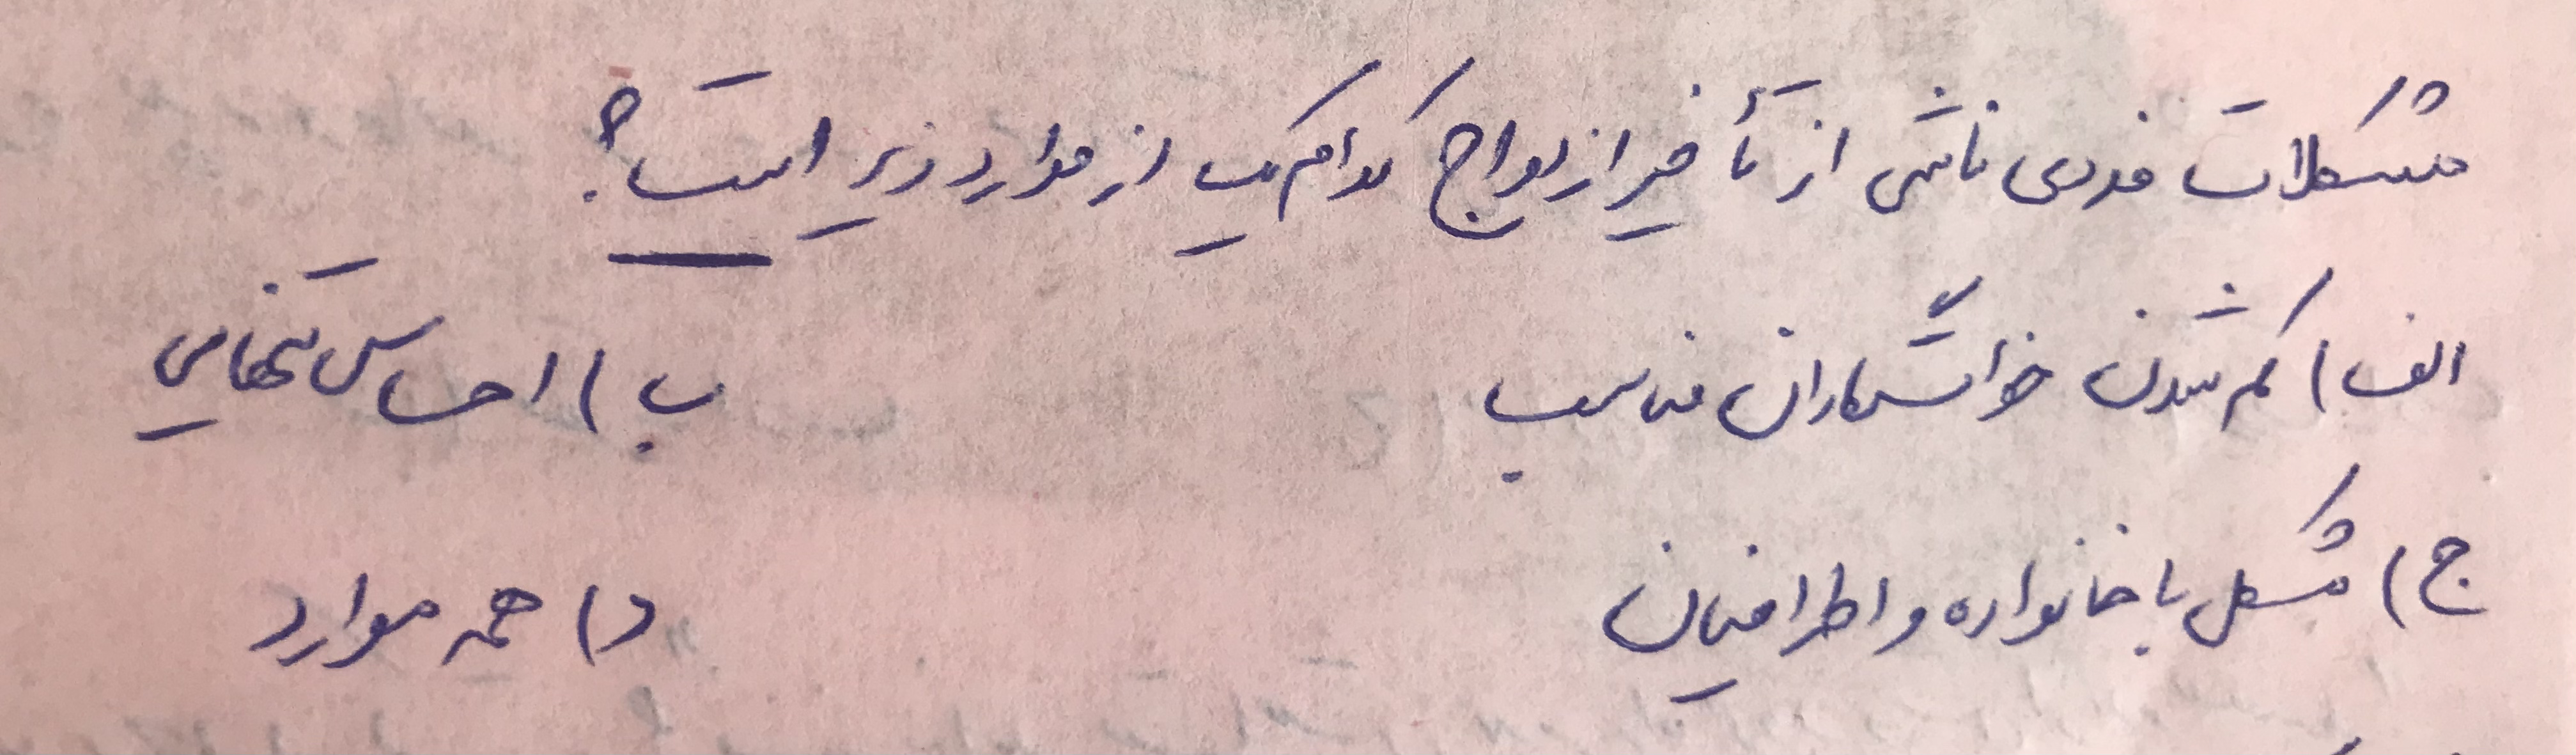 مشکلات فردی ناشی از تأخیر ازدواج کدام یک از موارد زیر است؟
الف) کم شدن خواستگاران مناسب ب) احساس تنهایی
ج) مشکل با خانواده و اطرافیان د) همه موارد